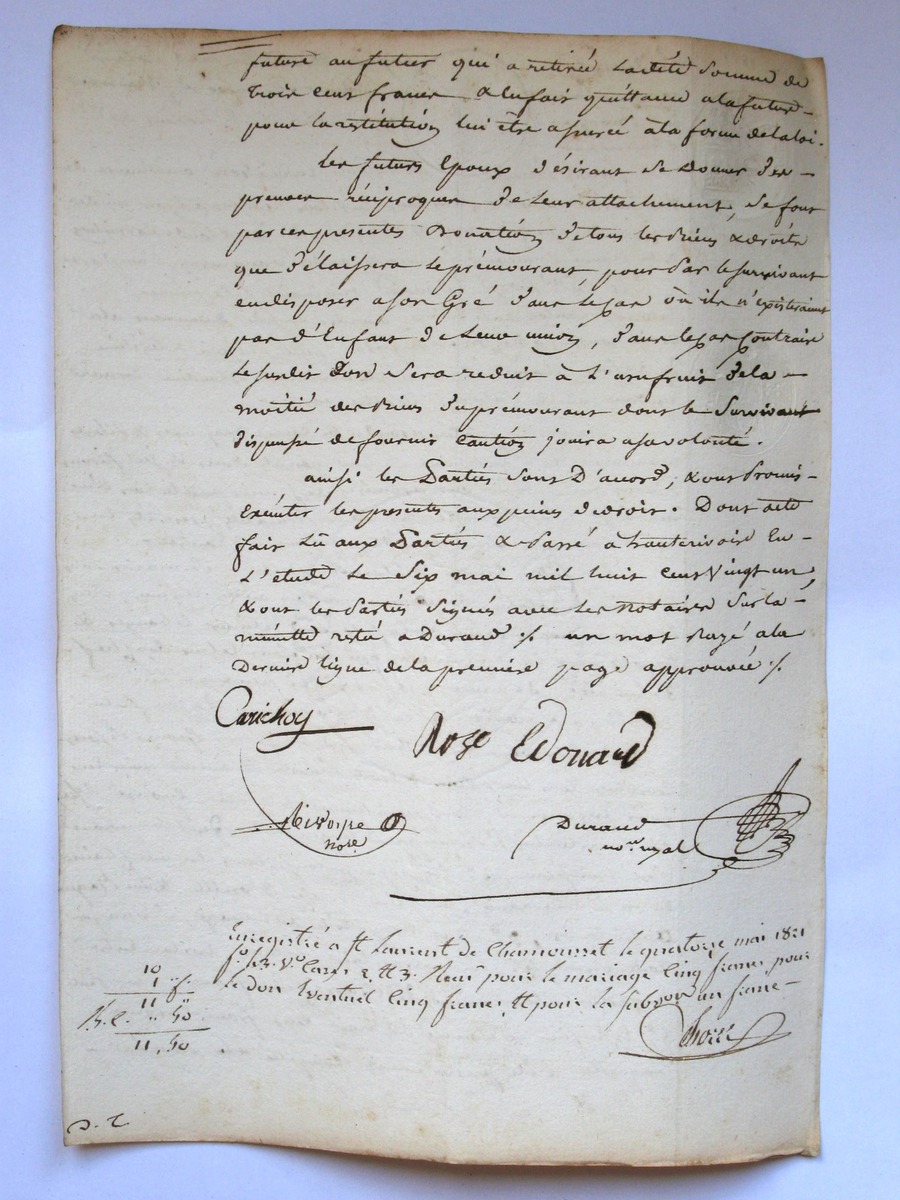 future au futur qui a retirée ladite somme de
trois cent francs & en fait quittance a la future
pour la restitution lui être assurée à la forme de la loi.
Les futurs Epoux désirant se donner des
preuves réciproques de leur attachement, se font
par ces presentes Donation de tous les biens & droits
que délaissera le prémourant, pour par le survivant
en disposer a son Gré dans le cas où ils n'existeraient
pas d'Enfant de Leur union, dans le cas Contraire
Le susdit Don sera reduit à L'usufruit de la
moitié des biens du prémourant dont le Survivant
dispensé de fournir Caution jouira a sa volonté.
ainsi les Parties sont D'accord, & ont Promis
Exécuter les presentes aux peines de droit. Dont acte
fait Lû aux Parties & Passé a hauterivoire En
L'etude Le Six mai mil huit cent Vingt un,
& ont les Parties Signés avec les Notaires sur la
minutte restée a Durand ./. un mot Rayé a la
Derniere ligne de la premiere page approuvée ./.
Rose Edouard
nore
Durand
nore royal
Enregistré a St Laurent de Chamousset le quatorze mai 1821
fo 43 Vo Cases 2 et 3. Recu pour le mariage Cinq francs pour
le don Eventuel Cinq francs et pour la subvon un franc
10
1 f.
11 "
" 50
11, 50